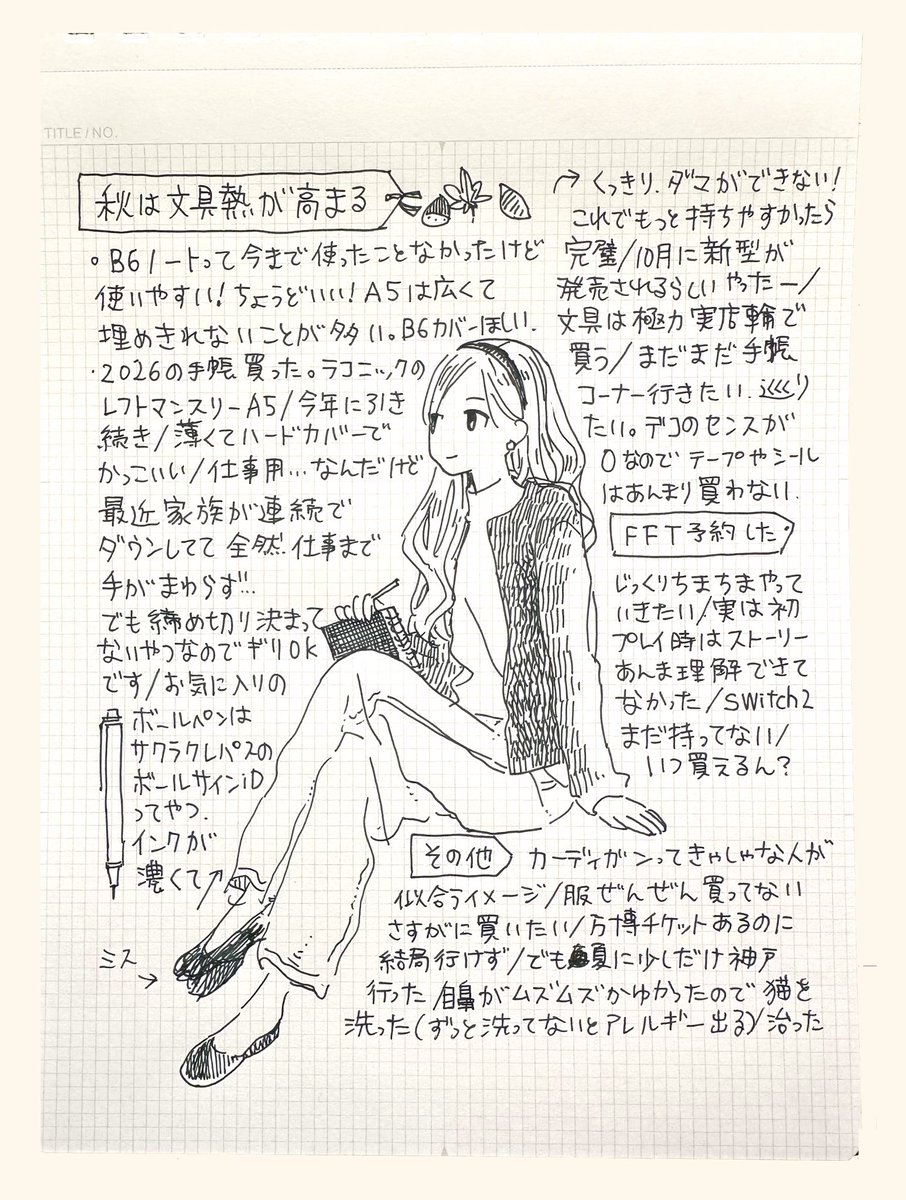 TITLE/NO.
秋は文具熱が高まる
。B6ノートって今まで使ったことなかったけど
使いやすい!ちょうどいい!A5は広くて
埋めきれないことが多い。B6カバーほしい.
・2026の手帳買った。ラコニックの
レフトマンスリーA5/今年に引き
続き/薄くてハードカバーで
かっこいい/仕事用…なんだけど
最近家族が連続で
ダウンしてて全然仕事まで
手がまわらず…
でも締め切り決まって
ないやつなのでギリOK
です/お気に入りの
ボールペンは
サクラクレパスの
ボールサインiD
ってやつ.
インクが
濃くて↗
↗くっきり.ダマができない!
これでもっと持ちやすかったら
完璧/10月に新型が
発売されるらしいやったー/
文具は極力実店舗で
買う/まだまだ手帳
コーナー行きたい.巡り
たい。デコのセンスが
0なのでテープやシール
はあんまり買わない.
FFT予約した
じっくりちまちまやって
いきたい/実は初
プレイ時はストーリー
あんま理解できて
なかった/Switch2
まだ持ってない/
いつ買えるん?
その他
カーディガンってきゃしゃな人が
似合うイメージ/服ぜんぜん買ってない
さすがに買いたい/万博チケットあるのに
結局行けず/でも夏に少しだけ神戸
行った/鼻がムズムズかゆかったので猫を
洗った(ずっと洗ってないとアレルギー出る)/治った
ミス
→